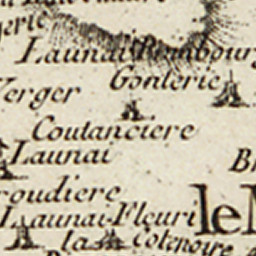 erie
Launai Rambourg
Gonterie
Verger
Coutanciere
Launai
B
roudiere
Launai-Fleuri
le M
la Cotenoire